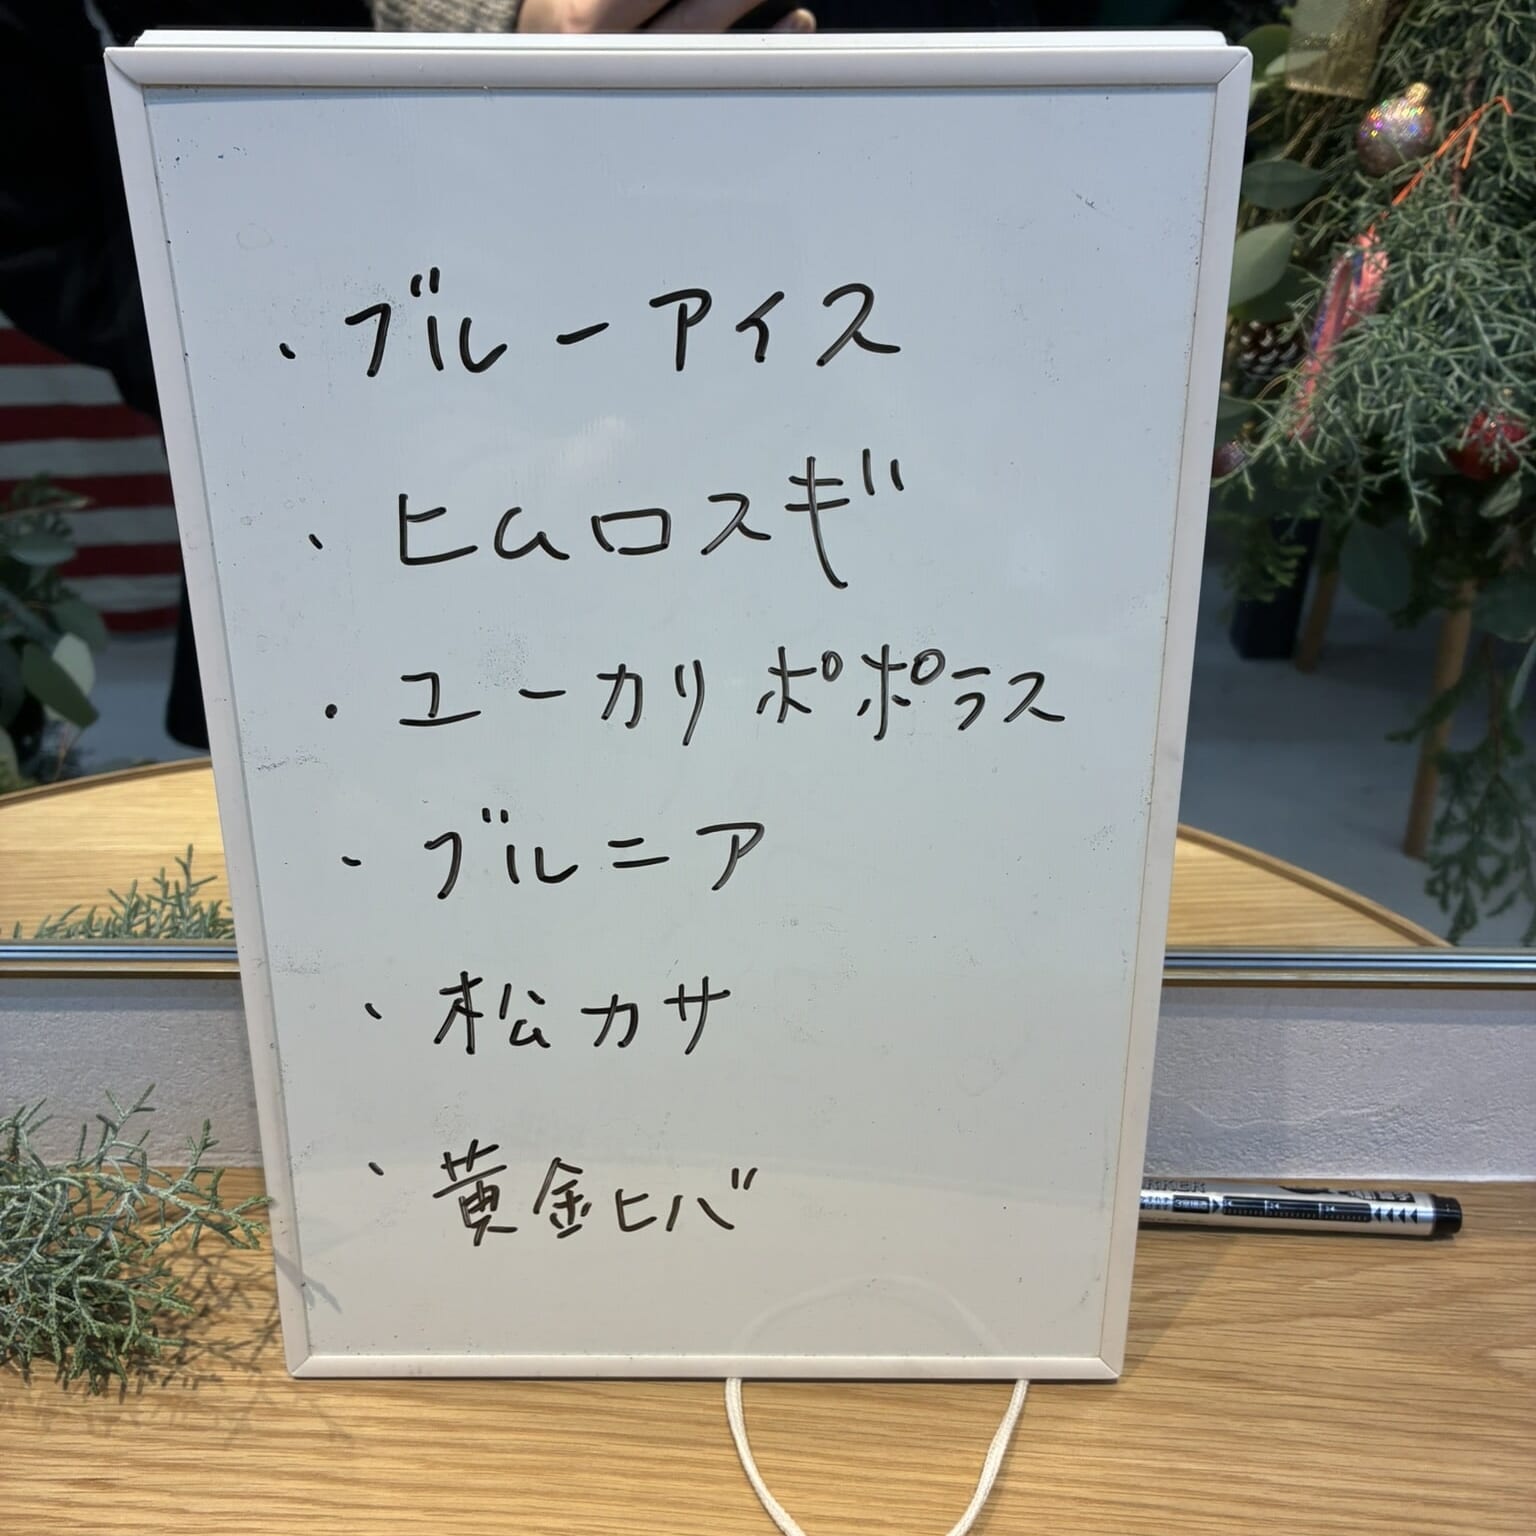 ・ブルーアイス
・ヒムロスギ
・ユーカリ ポポラス
・ブルニア
・松カサ
・黄金ヒバ